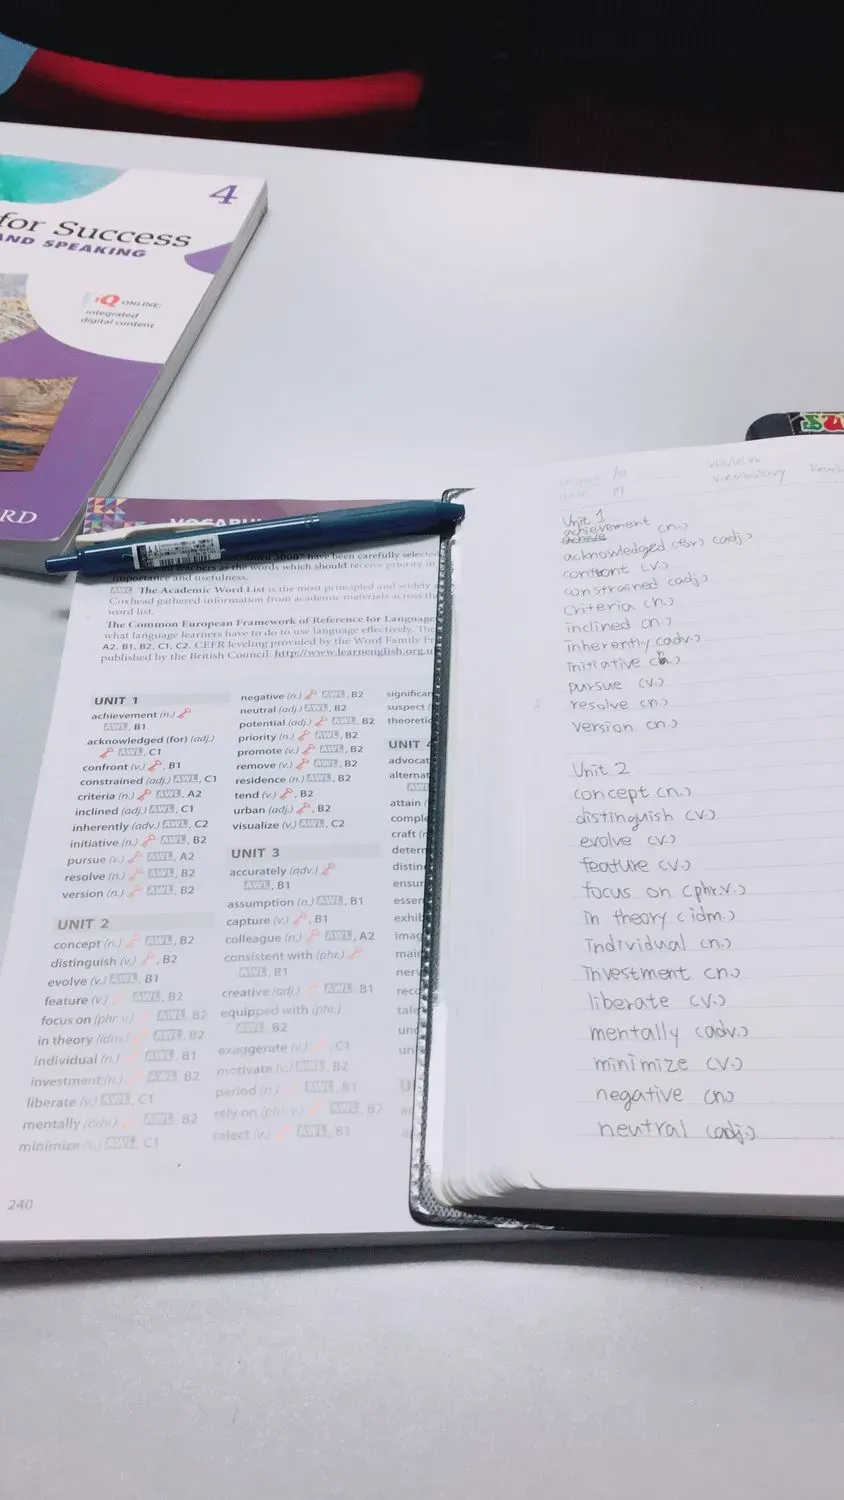 4
for Success
AND SPEAKING
iQ ONLINE:
integrated
digital content
RD
have been carefully selected
teachers as the words which should receive priority in
importance and usefulness.
AWL The Academic Word List is the most principled and widely
Coxhead gathered information from academic materials across th
word list.
The Common European Framework of Reference for Language
what language learners have to do to use language effectively. The
A2, B1, B2, C1, C2. CEFR leveling provided by the Word Family Fr
published by the British Council. http://www.learnenglish.org.u
UNIT 1
achievement (n.)
AWL, B1
acknowledged (for) (adj.)
AWL, C1
confront (v.) , B1
constrained (adj.) AWL, C1
criteria (n.) AWL, A2
inclined (adj.) AWL, C1
inherently (adv.) AWL, C2
initiative (n.) AWL, B2
pursue (v.) AWL, A2
resolve (n.) AWL, B2
version (n.) AWL, B2
UNIT 2
concept (n.) AWL, B2
distinguish (v.) , B2
evolve (v.) AWL, B1
feature (v.) AWL, B2
focus on (phr. v.) AWL, B2
in theory (idm.) AWL, B2
individual (n.) AWL, B1
investment (n.) AWL, B2
liberate (v.) AWL, C1
mentally (adv.) AWL, B2
minimize (v.) AWL, C1
240
negative (n.) AWL, B2
neutral (adj.) AWL, B2
potential (adj.) AWL, B2
priority (n.) AWL, B2
promote (v.) AWL, B2
remove (v.) AWL, B2
residence (n.) AWL, B2
tend (v.) , B2
urban (adj.) , B2
visualize (v.) AWL, C2
UNIT 3
accurately (adv.)
AWL, B1
assumption (n.) AWL, B1
capture (v.) , B1
colleague (n.) AWL, A2
consistent with (phr.)
AWL, B1
creative (adj.) AWL, B1
equipped with (phr.)
AWL, B2
exaggerate (v.) , C1
motivate (v.) AWL, B2
period (n.) AWL, B1
rely on (phr. v.) AWL, B2
select (v.) AWL, B1
significan
suspect (
theoretic
UNIT 4
advocat
alternat
AW
attain (
comple
craft (
determ
distin
ensur
essen
exhib
imag
main
nerv
reco
tale
und
un
Vocabulary
Unit 1
achievement (n.)
acknowledged (for) (adj.)
confront (v.)
constrained (adj.)
criteria (n.)
inclined (n.)
inherently (adv.)
initiative (n.)
pursue (v.)
resolve (n.)
version (n.)
Unit 2
concept (n.)
distinguish (v.)
evolve (v.)
feature (v.)
focus on (phr.v.)
in theory (idm.)
individual (n.)
investment (n.)
liberate (v.)
mentally (adv.)
minimize (v.)
negative (n.)
neutral (adj.)